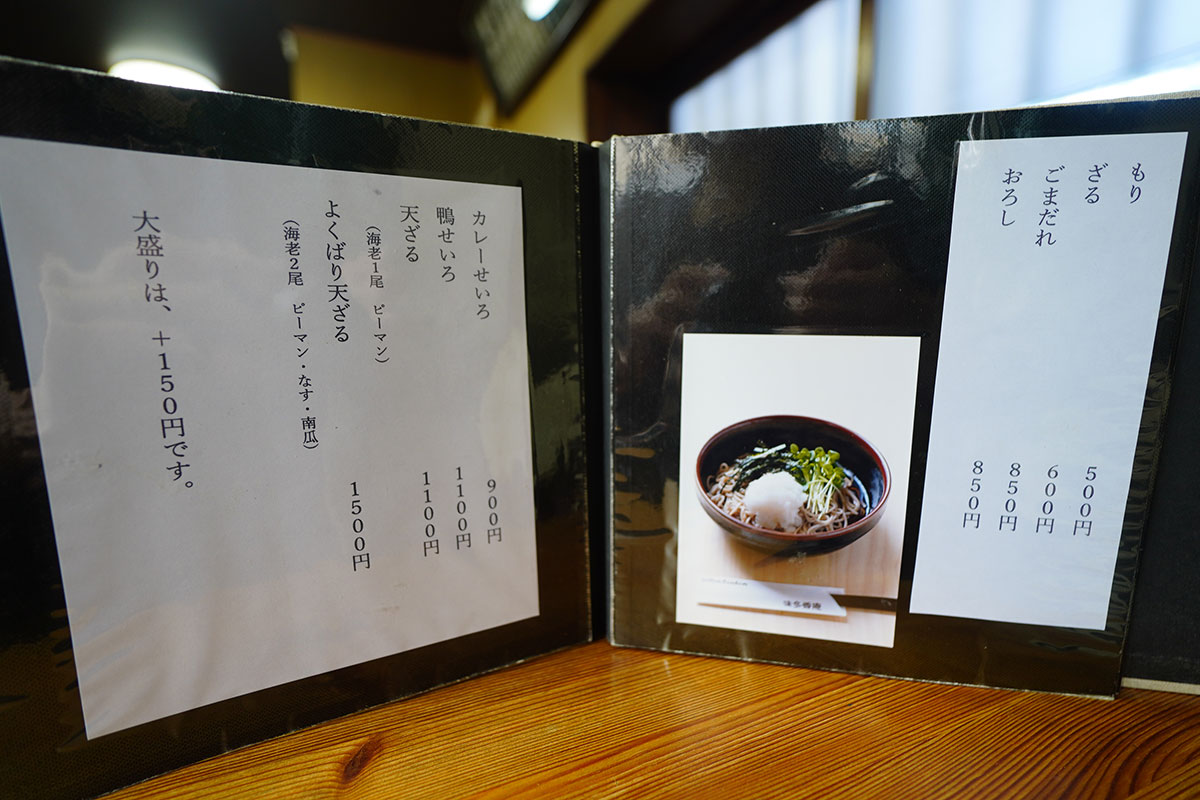 もり 500円
ざる 600円
ごまだれ 850円
おろし 850円
カレーせいろ 900円
鴨せいろ 1100円
天ざる 1100円
(海老1尾 ピーマン)
よくばり天ざる 1500円
(海老2尾 ピーマン・なす・南瓜)
大盛りは、+150円です。